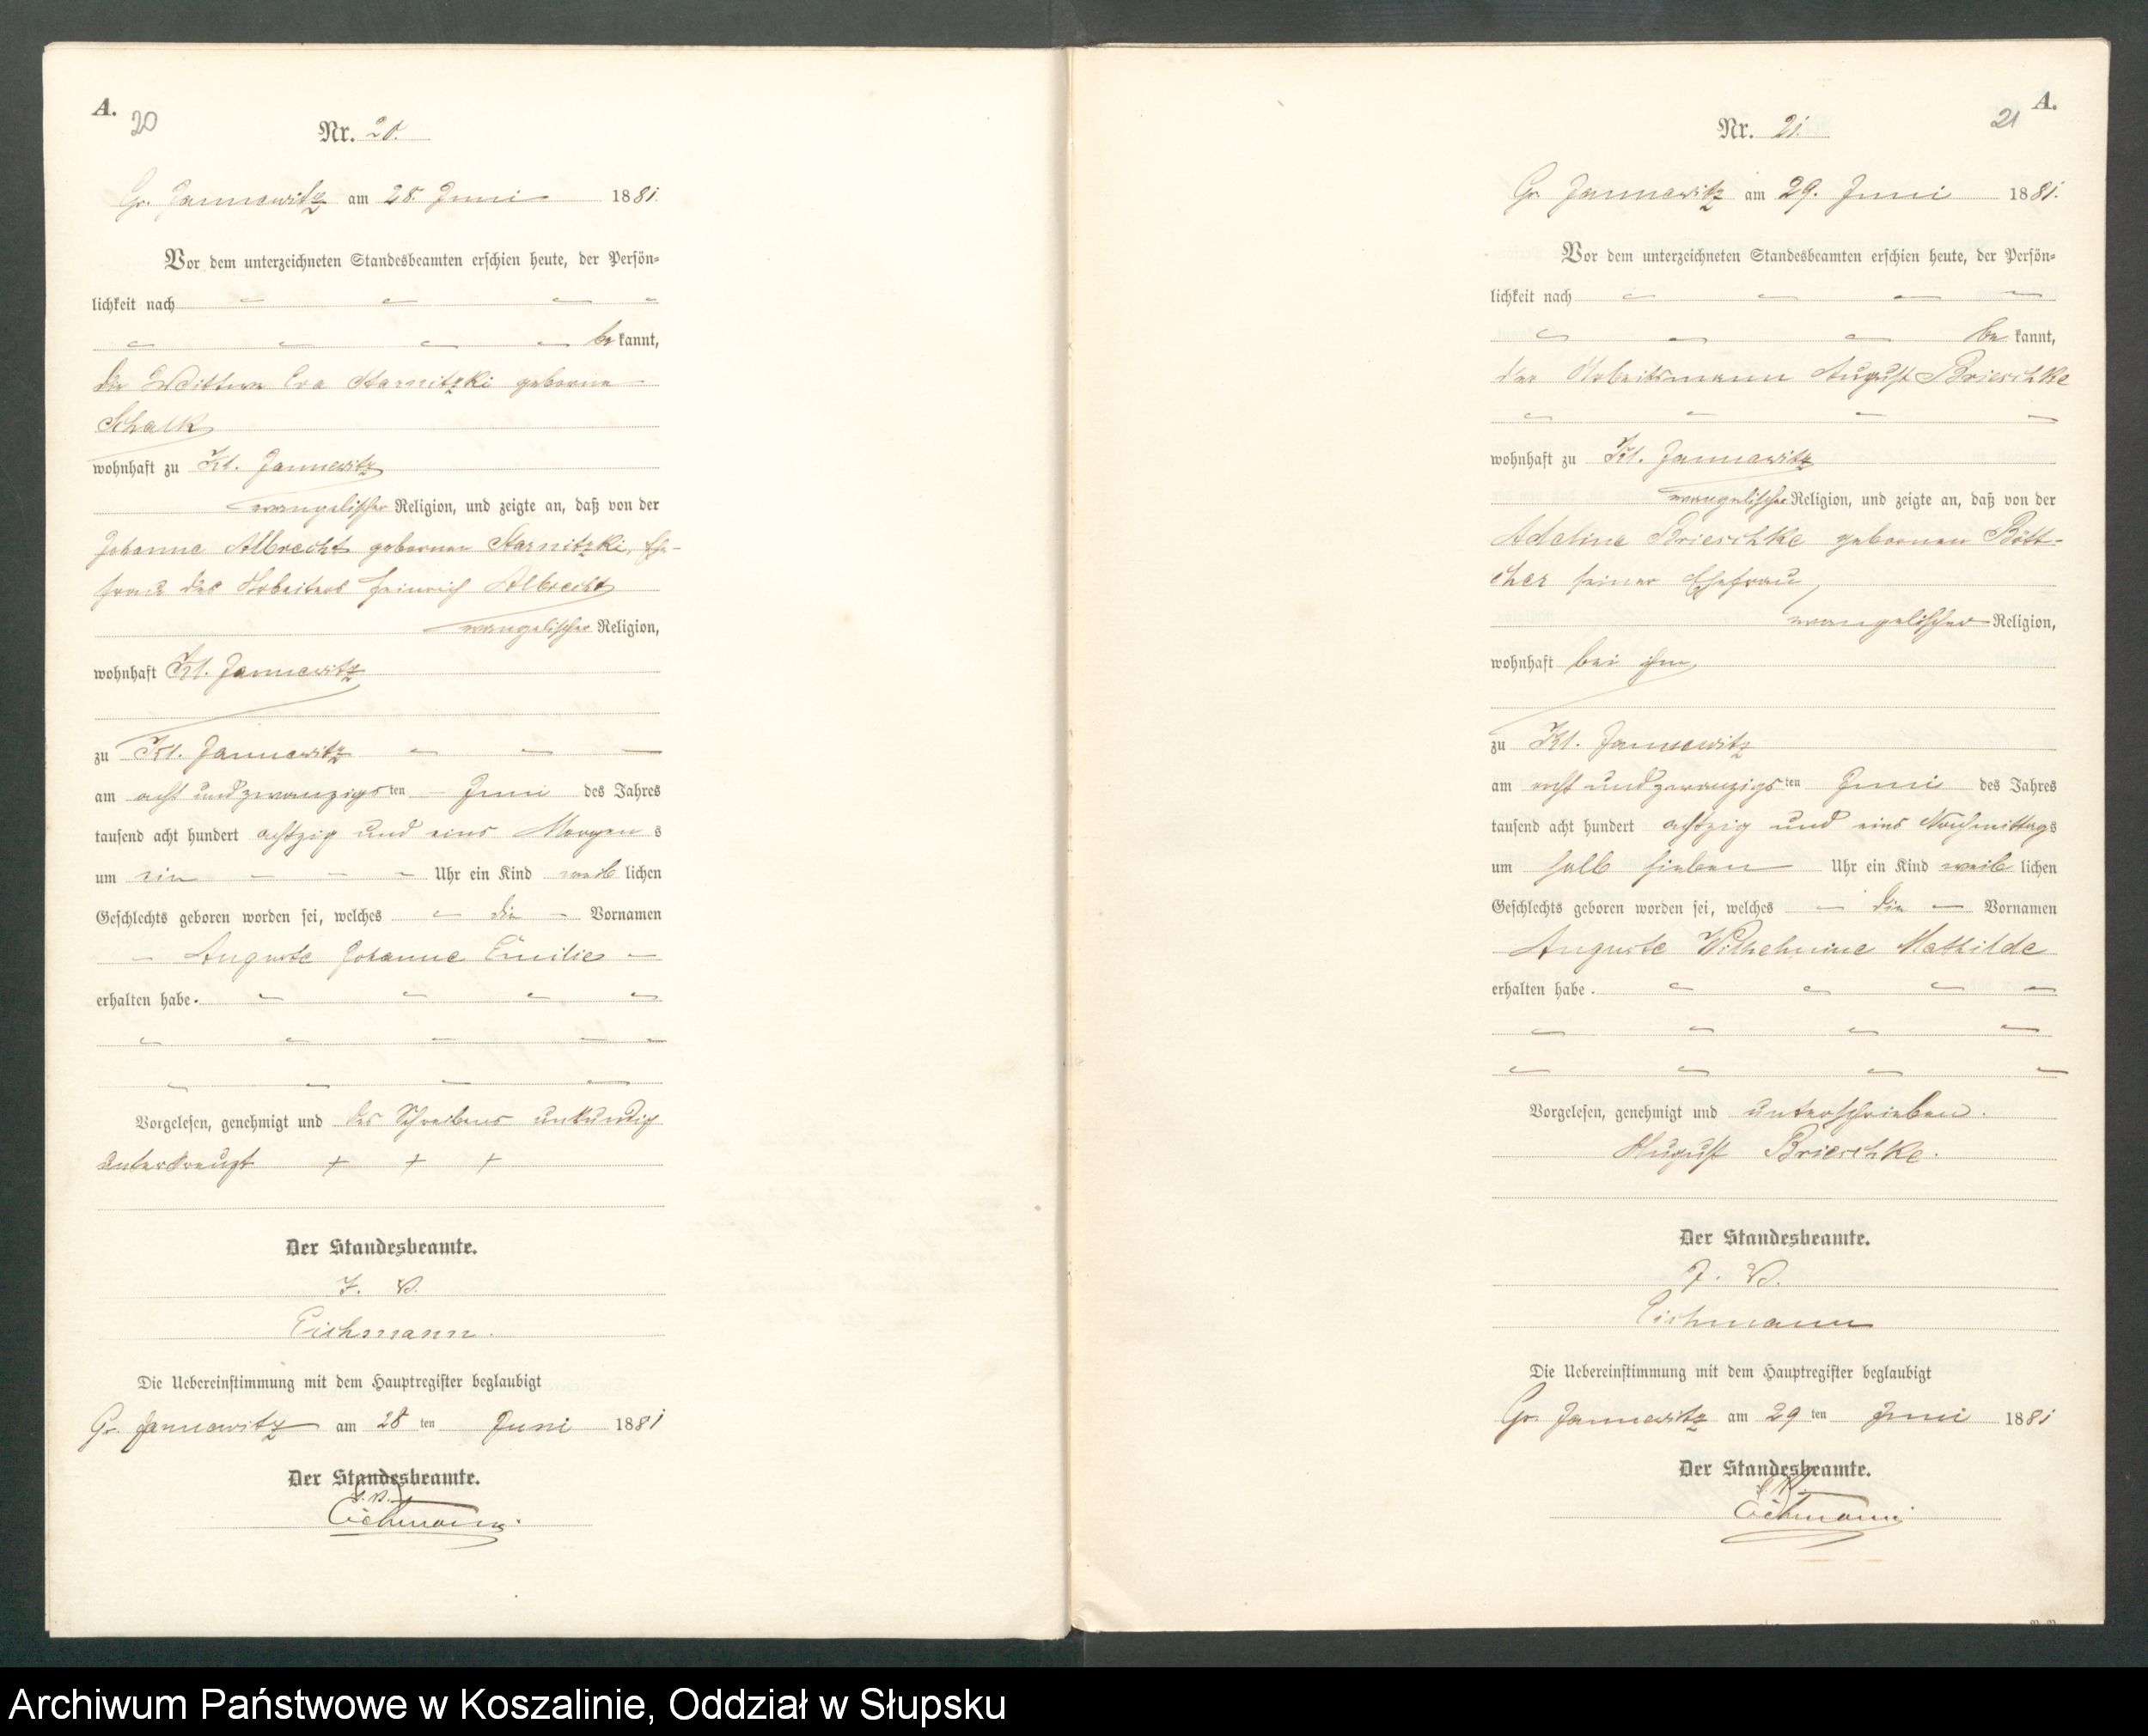 A.
20
Nr. 20.
Gr. Jannewitz am 28. Juni 1881.
Vor dem unterzeichneten Standesbeamten erschien heute, der Persön-
lichkeit nach
bekannt,
die Wittwe Eva Starnitzki geborne
Schalk
wohnhaft zu Kl. Jannewitz
evangelischer Religion, und zeigte an, daß von der
Johanne Albrecht gebornen Starnitzki, Ehe-
frau des Arbeiters Heinrich Albrecht
evangelischer Religion,
wohnhaft Kl. Jannewitz
zu Kl. Jannewitz
am acht und zwanzigsten Juni des Jahres
tausend acht hundert achtzig und eins Morgens
um ein Uhr ein Kind weiblichen
Geschlechts geboren worden sei, welches die Vornamen
Auguste Johanne Emilie
erhalten habe.
Vorgelesen, genehmigt und des Schreibens unkundig
unterkreuzt + + +
Der Standesbeamte.
I. V.
Eichmann.
Die Uebereinstimmung mit dem Hauptregister beglaubigt
Gr. Jannewitz am 28 ten Juni 1881
Der Standesbeamte.
I. V.
Eichmann.
A.
21
Nr. 21.
Gr. Jannewitz am 29. Juni 1881.
Vor dem unterzeichneten Standesbeamten erschien heute, der Persön-
lichkeit nach
bekannt,
der Arbeitsmann August Brieschke
wohnhaft zu Kl. Jannewitz
evangelischer Religion, und zeigte an, daß von der
Adeline Brieschke gebornen Bött-
cher seiner Ehefrau,
evangelischer Religion,
wohnhaft bei ihm
zu Kl. Jannewitz
am acht und zwanzigsten Juni des Jahres
tausend acht hundert achtzig und eins Nachmittags
um halb sieben Uhr ein Kind weiblichen
Geschlechts geboren worden sei, welches die Vornamen
Auguste Wilhelmine Mathilde
erhalten habe.
Vorgelesen, genehmigt und unterschrieben.
August Brieschke.
Der Standesbeamte.
I. V.
Eichmann
Die Uebereinstimmung mit dem Hauptregister beglaubigt
Gr. Jannewitz am 29 ten Juni 1881
Der Standesbeamte.
I. V.
Eichmann
Archiwum Państwowe w Koszalinie, Oddział w Słupsku